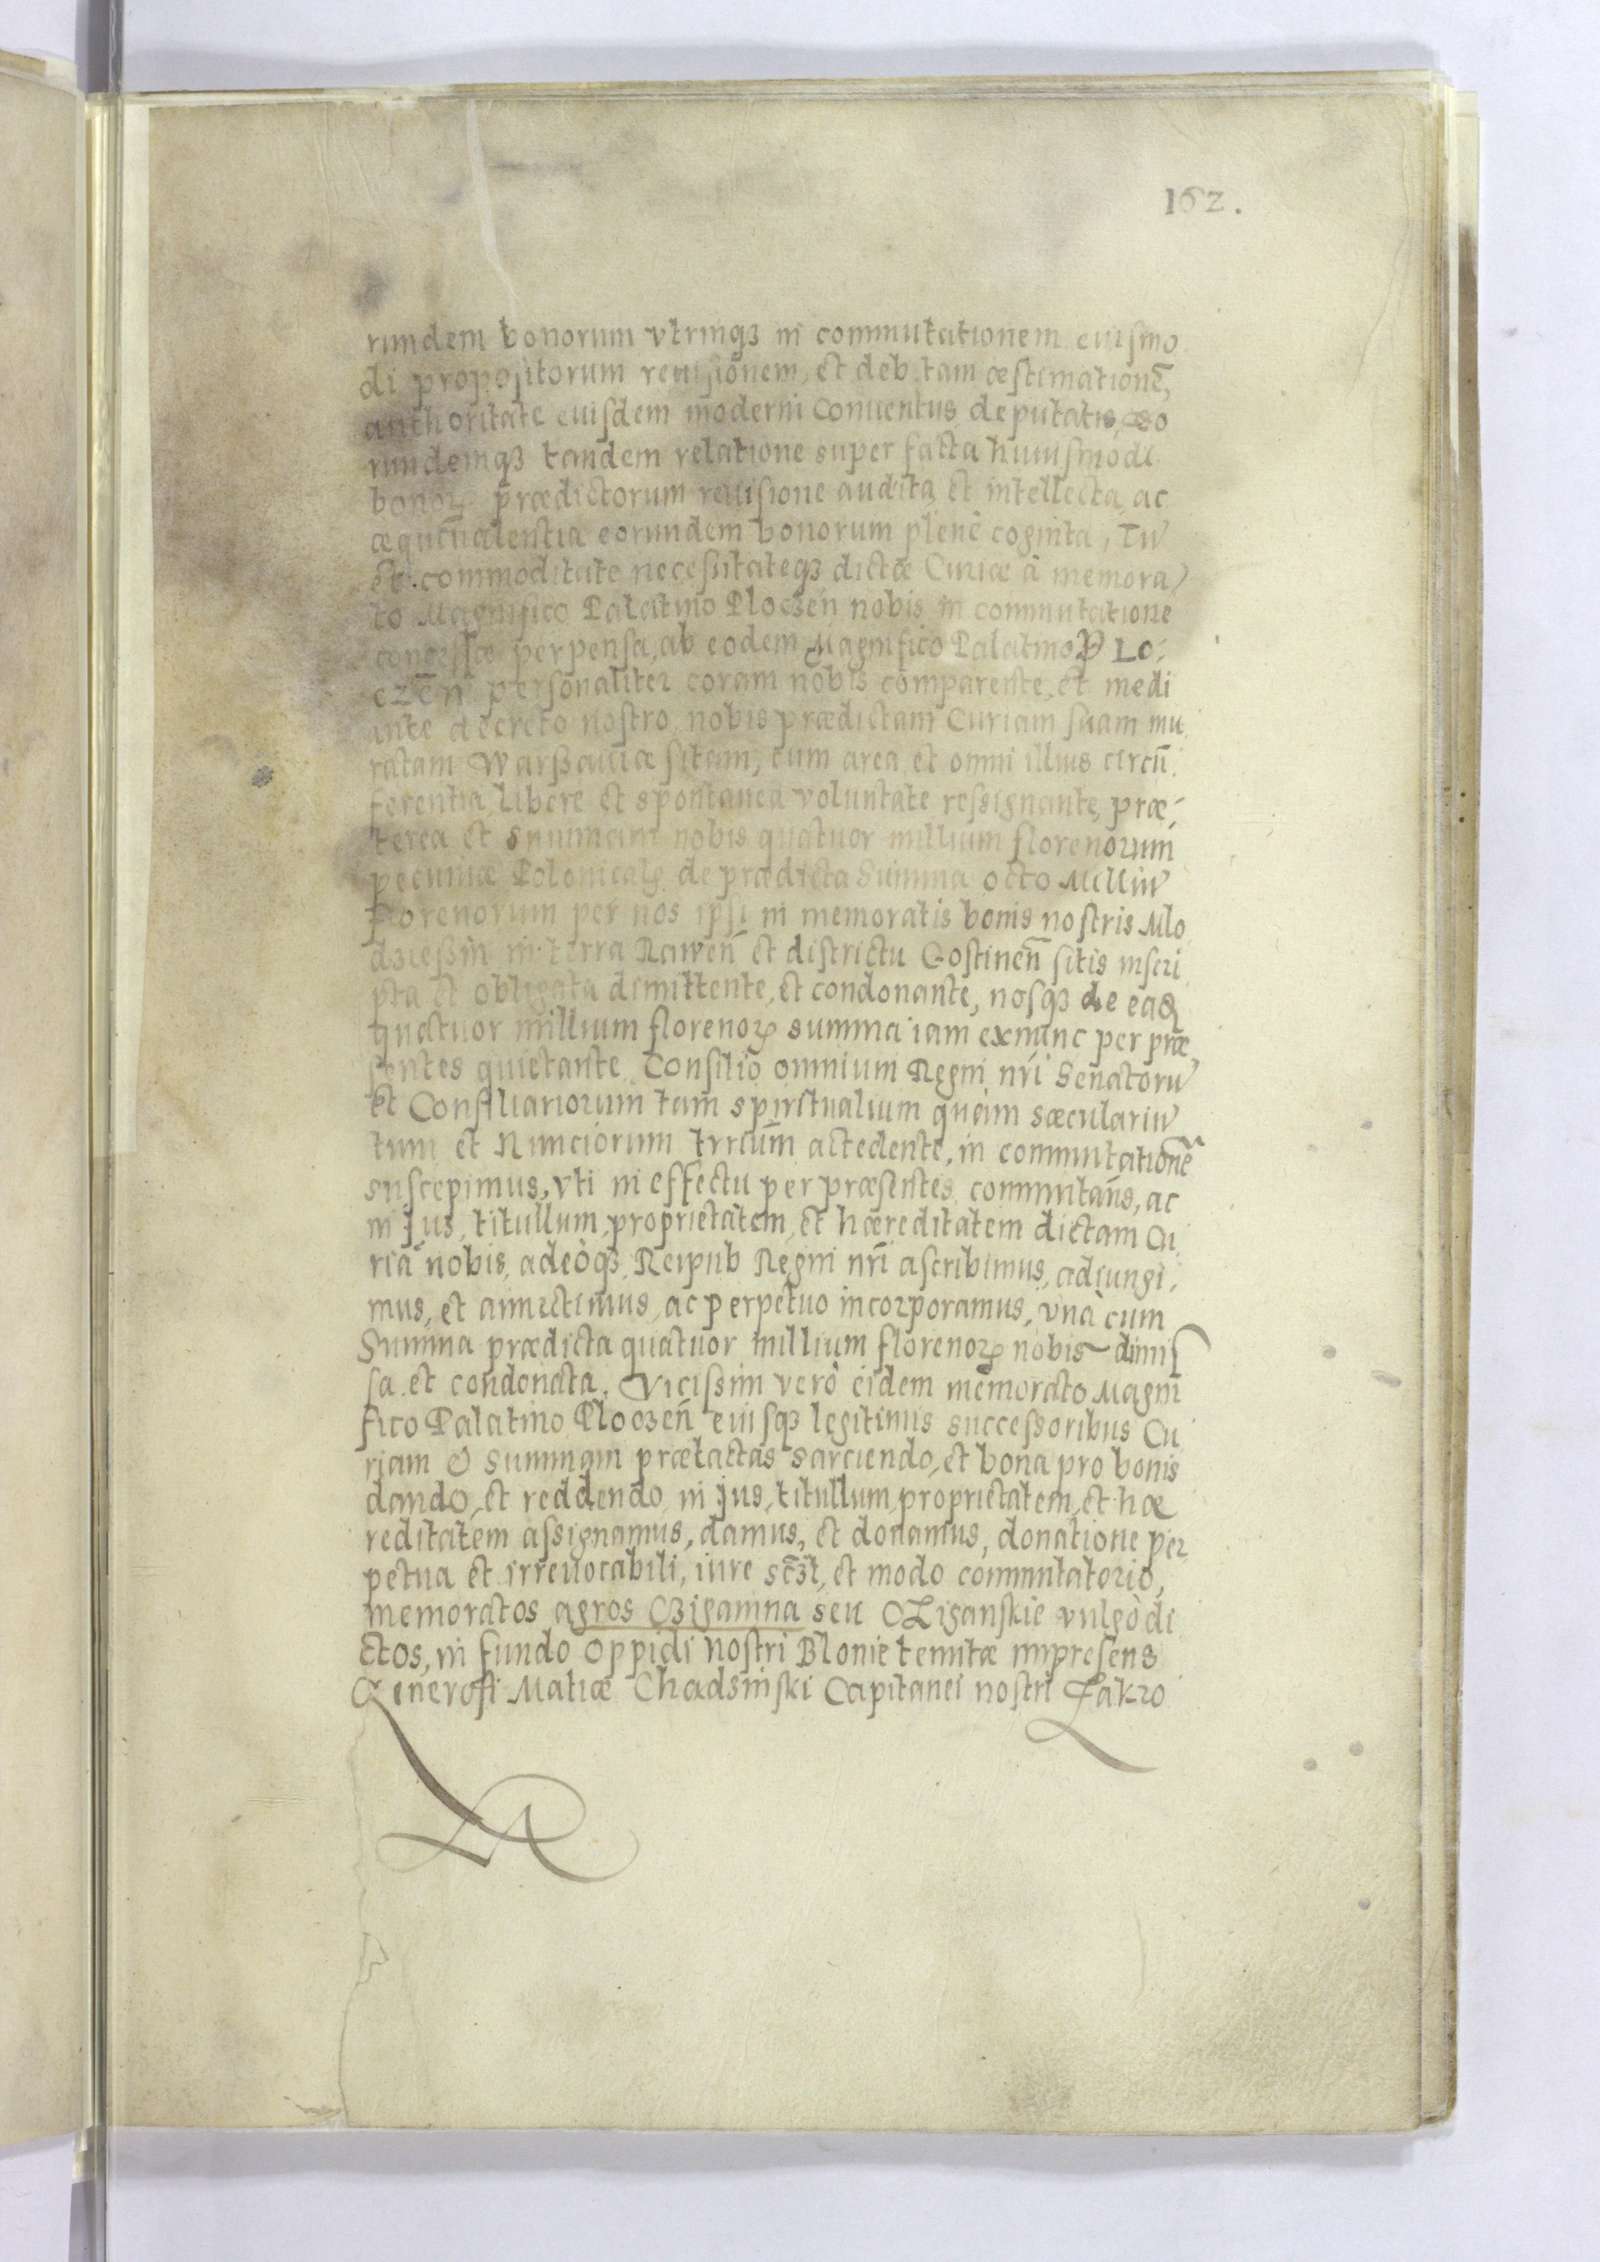 162.
rundem bonorum vtrinqꝫ in commutationem euismo
di propositorum reuisionem, et debitam æstimationē,
authoritate euisdem moderni Conuentus deputatis, eo
rundemqꝫ tandem relatione super facta huiusmodi
bonoꝝ prædictorum reuisione audita et intellecta, ac
æquiualentia eorundem bonorum plenè cognita, Tū
et commoditate necessitateqꝫ dictæ Curiæ à memora
to Magnifico Palatino Ploczeń nobis in commutatione
concessæ perpensa, ab eodem Magnifico Palatino PLo:
czēn personaliter coram nobis comparente, et medi
ante decreto nostro, nobis prædictam Curiam suam mu
ratam Warßauiæ sitam, cum area et omni illius circū
ferentia, libere et spontanea voluntate ressignante, præ:
terea et Summam nobis quatuor millium florenorum
pecuniæ Polonicalis de prædicta Summa octo Milliū
florenorum per nos ipsi in memoratis bonis nostris Mlo
dzießin in terra Rawen̄ et districtu Gostinen̄ sitis inscri
pta et obligata dimittente, et condonante, nosqꝫ de eadē
quatuor millium florenoꝝ summa iam exnunc per præ
sentes quietante. Consilio omnium Regni nr̄i Senatorū
et Consiliariorum tam spiritualium quàm sæculariū
tum et Nunciorum trrcum̄ accedente, in commutationē
suscepimus, vti in effectu per præsentes commutam̄s, ac
in jus, titullum, proprietatem, et hæreditatem dictam Cu
riā nobis, adeòqꝫ Reipub Regni nr̄i ascribimus, adiungi:
mus, et annectimus, ac perpetuo incorporamus, vnà cum
Summa prædicta quatuor millium florenoꝝ nobis dimis
sa et condonata. Vicissim verò eidem memorato Magni
fico Palatino Ploczen̄ eiusqꝫ legitimis successoribus Cu
riam & Summam prætactas sarciendo, et bona pro bonis
dando, et reddendo, in jus, titullum, proprietatem, et hæ
reditatem assignamus, damus, et donamus, donatione per
petua et irreuocabili, iure sc̄ꝫt, et modo commutatorio,
memoratos agros Czigamna seu CZiganskie vulgò di
ctos, in fundo Oppidi nostri Blonie temitæ impresens
Generosi Matiæ Chadsinski Capitanei nostri Zakro